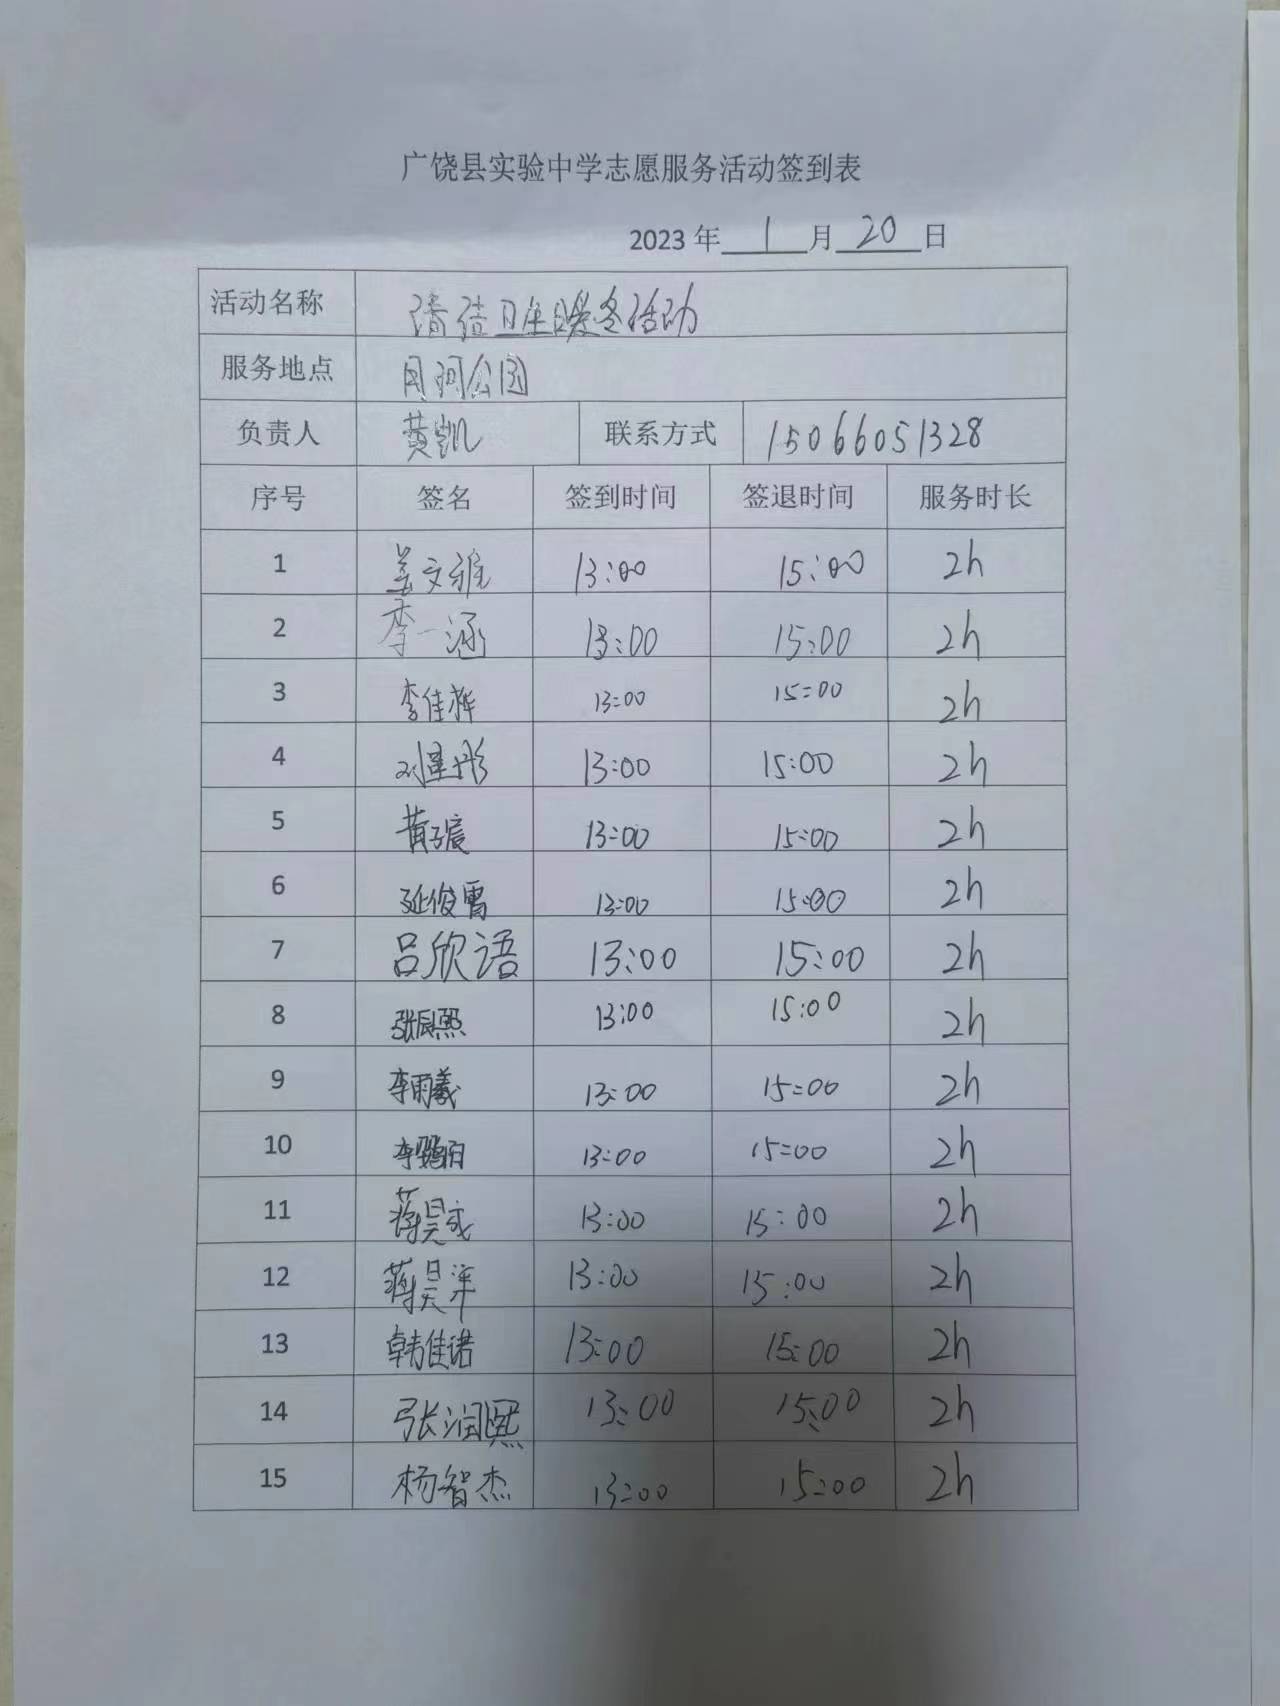 广饶县实验中学志愿服务活动签到表
2023 年 1 月 20 日
活动名称 清洁卫生暖冬活动
服务地点 月河公园
负责人 黄凯 联系方式 15066051328
序号 签名 签到时间 签退时间 服务时长
1 姜文雅 13:00 15:00 2h
2 李一涵 13:00 15:00 2h
3 李佳桦 13:00 15:00 2h
4 刘星彤 13:00 15:00 2h
5 黄子宸 13:00 15:00 2h
6 延俊霄 13:00 15:00 2h
7 吕欣语 13:00 15:00 2h
8 张辰熙 13:00 15:00 2h
9 李雨曦 13:00 15:00 2h
10 李 13:00 15:00 2h
11 蒋昊成 13:00 15:00 2h
12 蒋昊洋 13:00 15:00 2h
13 韩佳诺 13:00 15:00 2h
14 张润熙 13:00 15:00 2h
15 杨智杰 13:00 15:00 2h